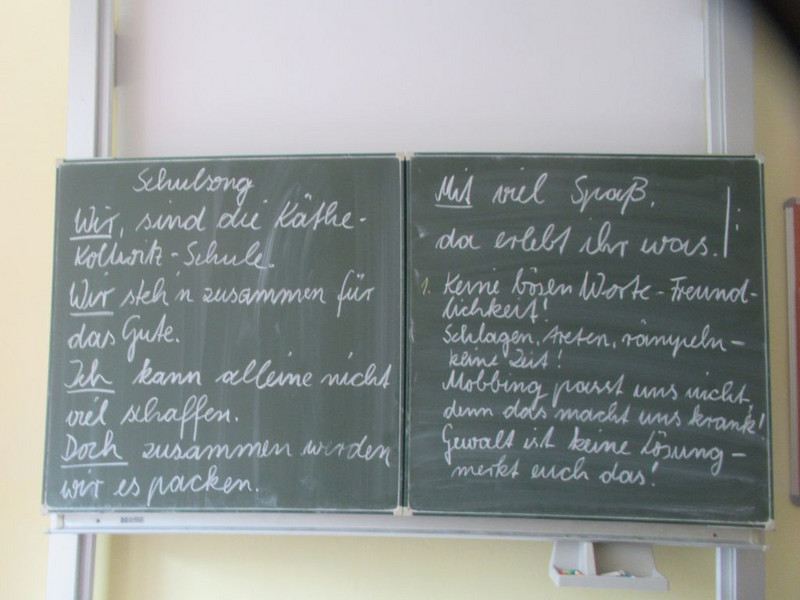 Schulsong
Wir, sind die Käthe-
Kollwitz-Schule.
Wir steh'n zusammen für
das Gute.
Ich kann alleine nicht
viel schaffen.
Doch zusammen werden
wir es packen.
Mit viel Spaß,
da erlebt ihr was.
1. Keine bösen Worte - Freund-
lichkeit!
Schlagen, treten, rämpeln -
keine Zeit!
Mobbing passt uns nicht,
denn das macht uns krank!
Gewalt ist keine Lösung -
merkt euch das!